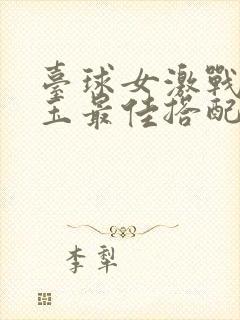 臺球女激戰
王最佳搭配
李犁